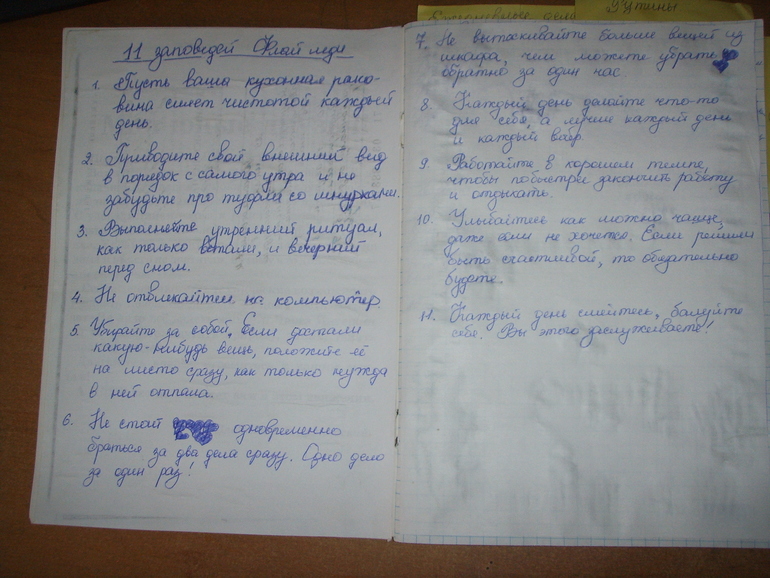 11 заповедей Флай леди
1. Пусть ваша кухонная рако-
вина сияет чистотой каждый
день.
2. Приводите свой внешний вид
в порядок с самого утра и не
забудьте про туфли со шнурками.
3. Выполняйте утренний ритуал,
как только встали, и вечерний
перед сном.
4. Не отвлекайтесь на компьютер.
5. Убирайте за собой. Если достали
какую-нибудь вещь, положите её
на место сразу, как только нужда
в ней отпала.
6. Не стоит одновременно
браться за два дела сразу. Одно дело
за один раз!
Ежедневные дела
Рутины
7. Не вытаскивайте больше вещей из
шкафа, чем можете убрать
обратно за один час.
8. Каждый день делайте что-то
для себя, а лучше каждый день
и каждый вечер.
9. Работайте в хорошем темпе,
чтобы побыстрее закончить работу
и отдыхать.
10. Улыбайтесь как можно чаще,
даже если не хочется. Если решили
быть счастливой, то обязательно
будете.
11. Каждый день смейтесь, балуйте
себя. Вы этого заслуживаете!